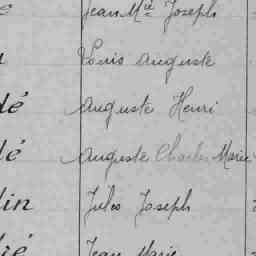 Jean Mie Joseph
Louis Auguste
dé Auguste Henri
dé Auguste Charles Marie
din Jules Joseph
ié Jean Marie